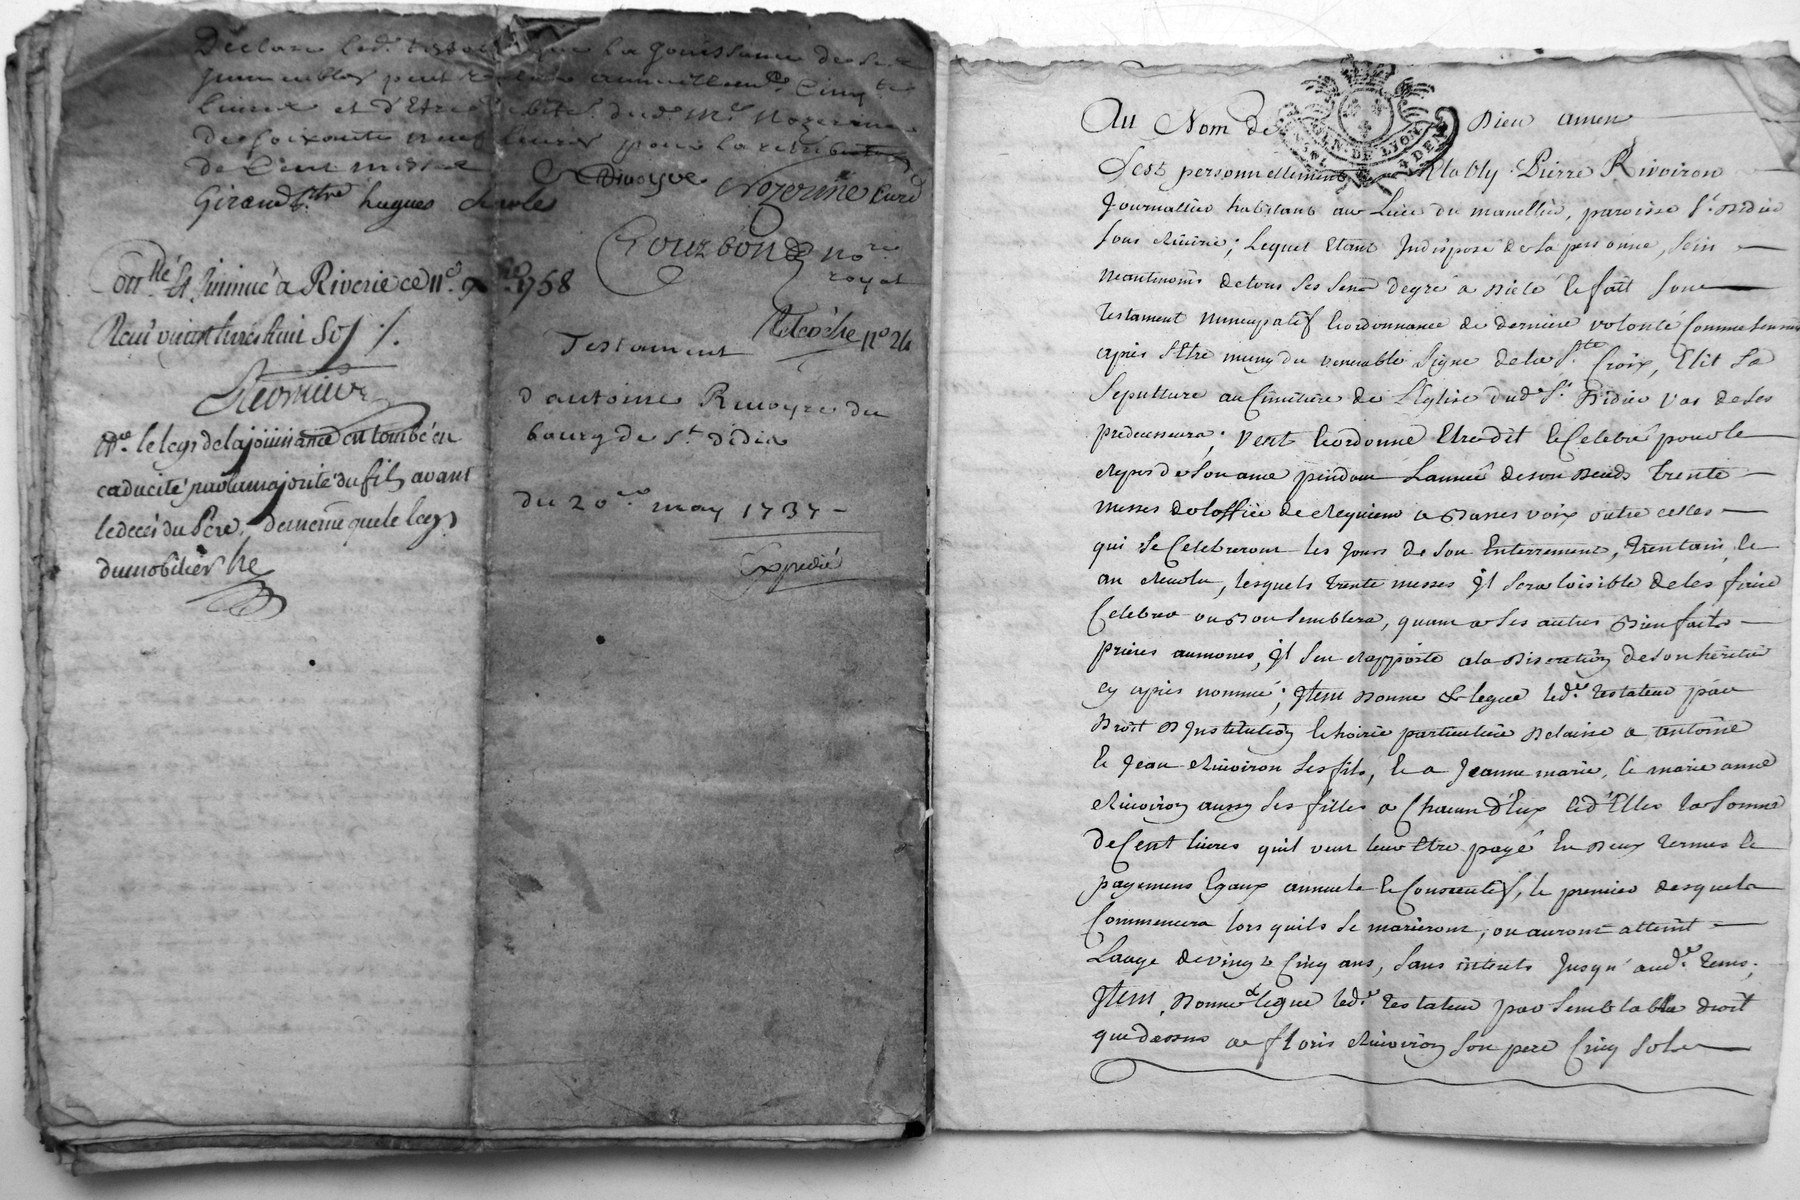 Declare led. que la jouissance de ses
immeubles peut
livres et d'Etre du d. Mr. Nozerine
de soixante neuf livres pour la retribution
de Cent messes
Giraud hugues charle
Rivoyre Nozerine Curé
Gourbon nore
royal
Con.llé et Insinué à Riverie ce 11e. 9bre 1758
Reçu vingt livres huit sols
le legs de la jouissance est tombé en
caducité par la majorité du fils avant
le deces du Pere, de meme que le legs
du mobilier
No 24
Testament
d'antoine Rivoyre du
bourg de St. didier
du 20e may 1737
Expedié
Au Nom de Dieu amen
GN. DE LYON
S'est personnellement Etably Pierre Rivoiron
Journallier habitant au Lieu du manillier, paroisse St. Didier
sous Riverie; Lequel Etant Indisposé de sa personne, sein
neantmoins de tous ses sens de gré a dicté et fait son
testament nuncupatif et ordonnance de derniere volonté Comme sensuit
après s'Etre muny du venerable signe de la Ste. Croix, Elit sa
sepulture au Cimitière de L'Eglise dud. St. Didier vas de ses
predecesseurs; veut et ordonne Etre dit et Celebré pour le
repos de son ame pendant Lannée de son Deceds trente
messes de loffice de Requiem a Basses voix outre celles
qui se Celebreront les Jours de son Enterrement, trentain, et
an revolu, lesquels trente messes Il sera loisible de les faire
Celebrer ou Bon semblera, quant a ses autres Bienfaits
prieres aumones, Il s'en rapporte a la Discretion de son heritier
cy après nommé; Item Donne & legue led. testateur par
Droit D'Institution et hoirie particuliere Delaisse a antoine
et Jean Rivoiron ses fils, et a Jeanne marie, et marie anne
Rivoiron aussy ses filles a Chacun d'Eux et d'Elles la somme
de Cent livres quil veut leur Etre payé En Deux termes et
payemens Egaux annuels et Consecutifs, le premier desquels
Commencera lors quils se marieront, ou auront atteint
Laage de vingt Cinq ans, sans interets Jusqu'aud. tems.
Item, Donne & legue led. testateur par semblable droit
que dessus a floris Rivoiron son pere Cinq sols